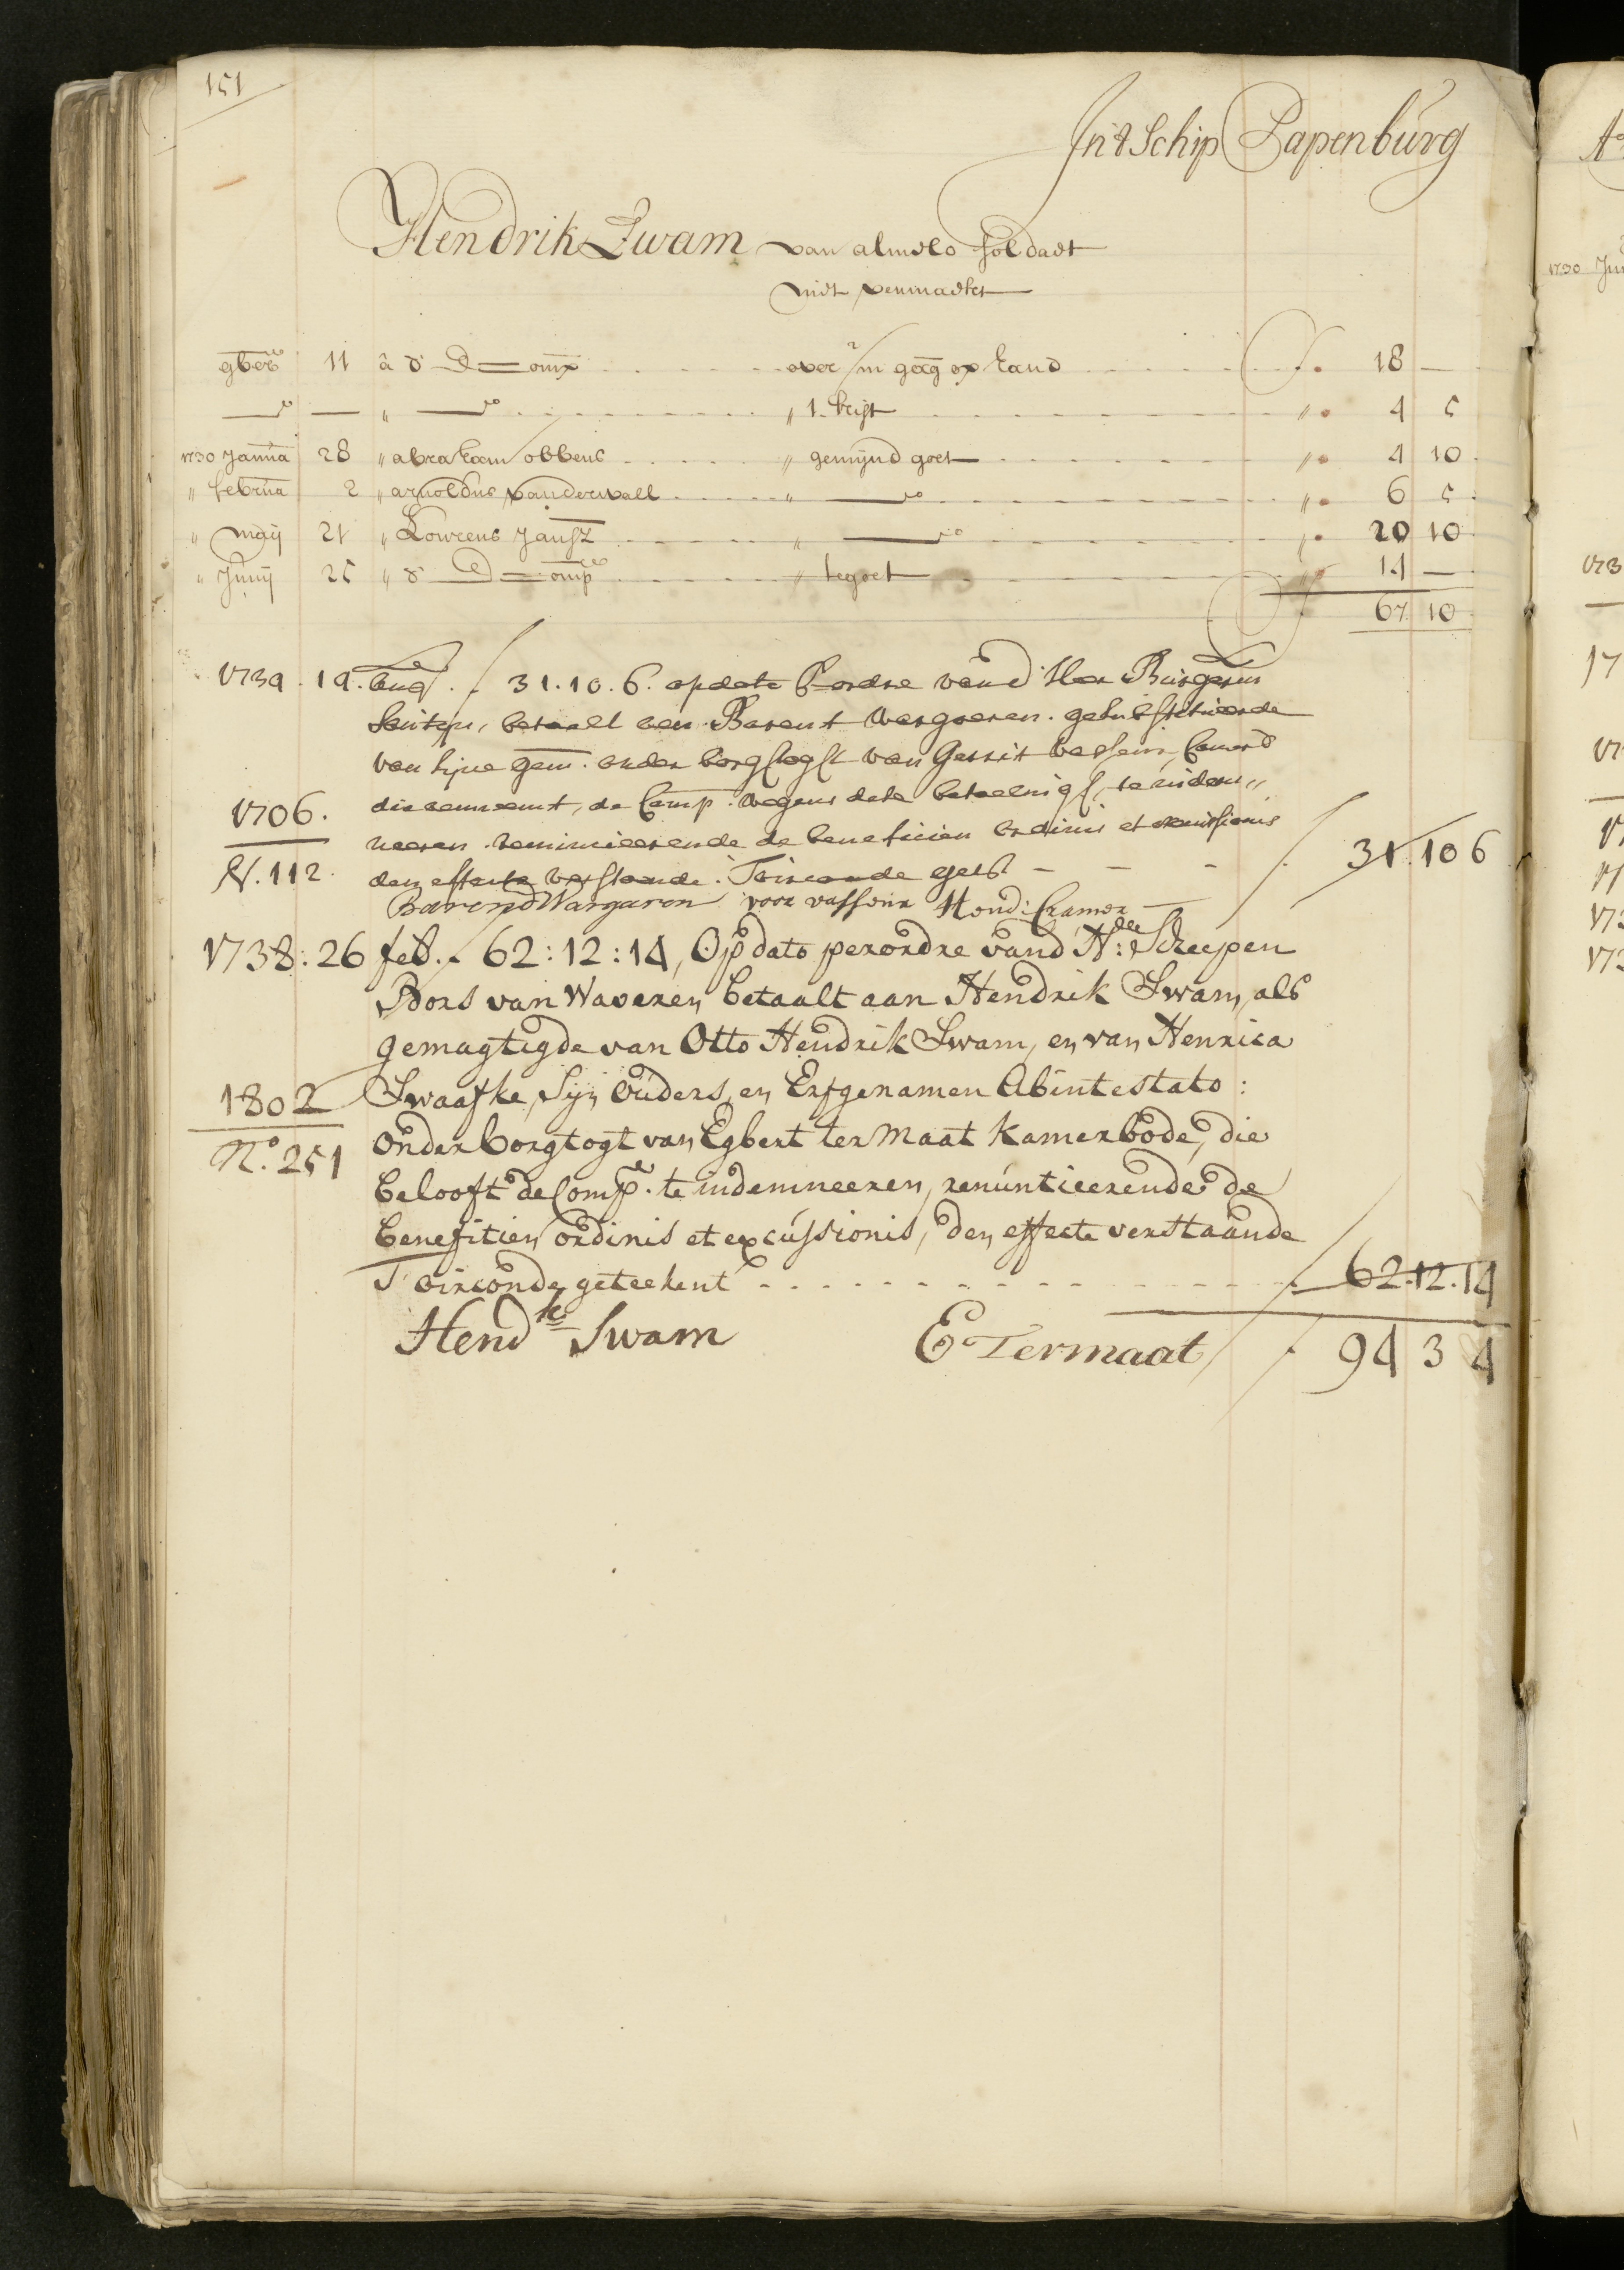 151
In't Schip Papenburg
Hendrik Swam van almelo soldaat
niet vermackt
9ber 11 à d' E Comp over 2/m gag op hand f 18 —
" 1 kist " 4 5
1730 Janua 28 " abraham obbens " gemynd goet " 4 10
" februa 2 " arnoldus vanderwall " " 6 5
" Maij 21 " Lourens Jansz " " 20 10
" Junij 25 " d' E Comp " tegoet " 14 —
67 10
1734. 19. Aug. f 31.10.6. op dato P ordre van d' Heer
betaalt aen Barent Wargaren. gesubstitueerde
van sijne gem. onder borgtogt van Gerrit
1706. die aenneemt, de Comp. wegens dese betaeling, te indem„
neeren. renuncieerende de beneficien ordinis et excussionis
N. 112. den effecte verstaende. Toirconde get f 31.10 6
Barend Wargaren voor vasseur Hend: Cramer
1738: 26 feb. f 62:12:14, Op dato per ordre vand H: der Scheepen
Bors van Waveren, betaalt aan Hendrik Swam, als
gemagtigde van Otto Hendrik Swam, en van Henrica
1802 Swaafke, Sijn Ouders, en Erfgenamen Abintestato:
No. 251 onder borgtogt van Egbert ter Maat Kamerbode, die
belooft de Compe. te indemneeren, renuntieerende de
benefitien ordinis et excussionis, den effecte verstaande
Toirconde geteekent f 62.12.14
Hendk Swam E Termaat f 94 3 4
1730 Jun